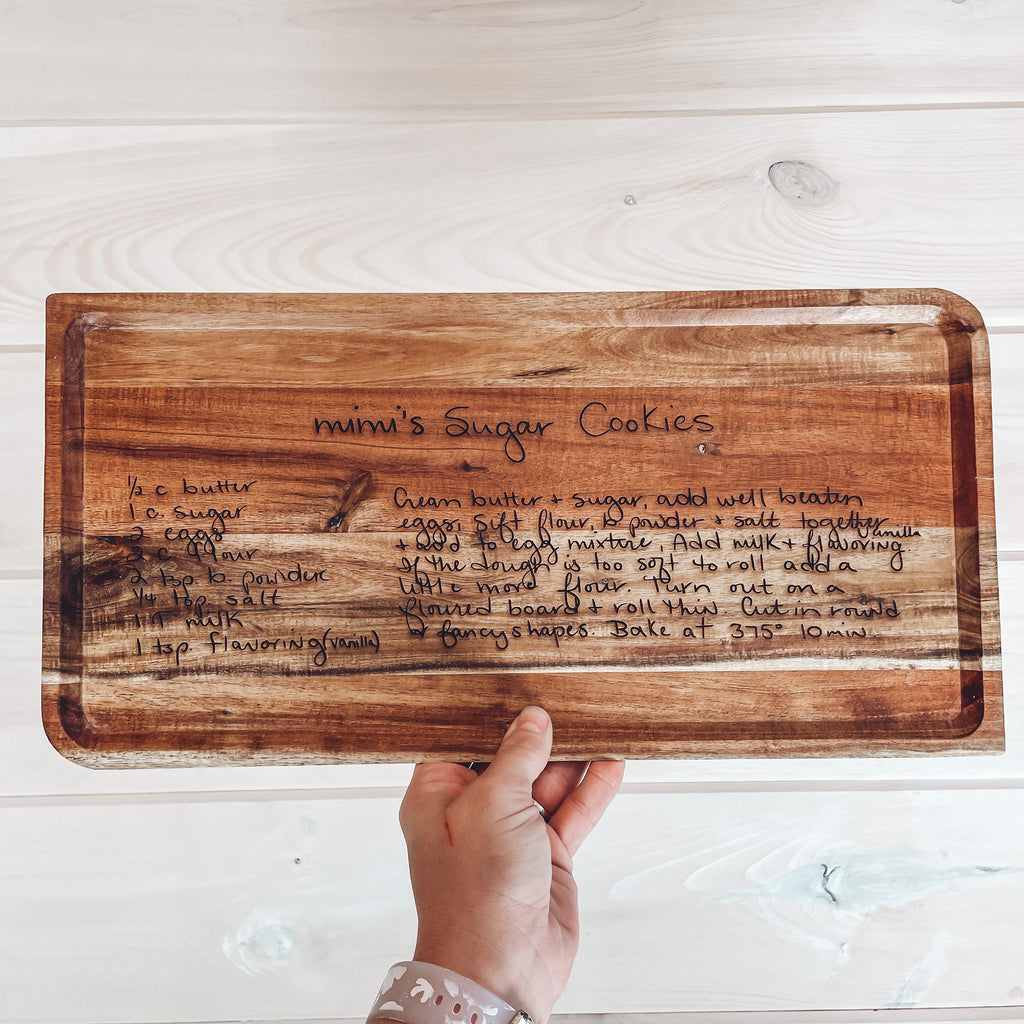 mimi's Sugar Cookies
½ c. butter
1 c. sugar
2 eggs
2 c. flour
2 tsp. b. powder
¼ tsp salt
1 T milk
1 tsp. flavoring (vanilla)
Cream butter + sugar, add well beaten
eggs, sift flour, b powder + salt together
+ add to egg mixture, Add milk + flavoring.
vanilla
If the dough is too soft to roll add a
little more flour. Turn out on a
floured board + roll thin. Cut in round
or fancy shapes. Bake at 375° 10 min.